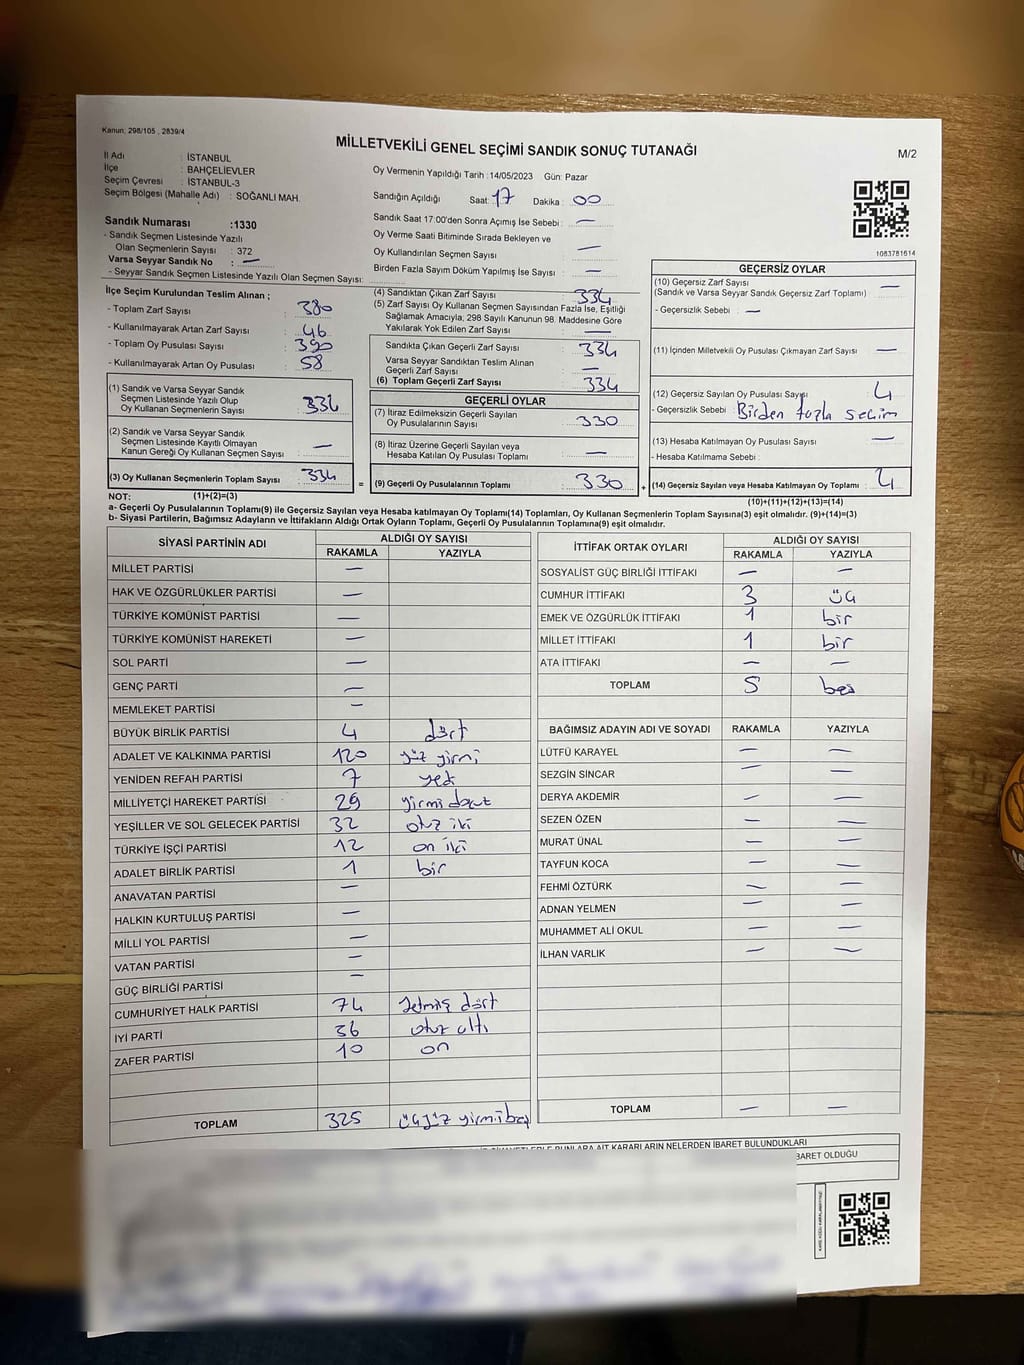 Kanun, 298/105 , 2839/4
MİLLETVEKİLİ GENEL SEÇİMİ SANDIK SONUÇ TUTANAĞI
M/2
İl Adı : İSTANBUL
İlçe : BAHÇELİEVLER
Seçim Çevresi : İSTANBUL-3
Seçim Bölgesi (Mahalle Adı) : SOĞANLI MAH.
Sandık Numarası :1330
- Sandık Seçmen Listesinde Yazılı
Olan Seçmenlerin Sayısı : 372
Varsa Seyyar Sandık No : —
- Seyyar Sandık Seçmen Listesinde Yazılı Olan Seçmen Sayısı:
Oy Vermenin Yapıldığı Tarih :14/05/2023 Gün: Pazar
Sandığın Açıldığı Saat: 17 Dakika : 00
Sandık Saat 17:00'den Sonra Açımış İse Sebebi : —
Oy Verme Saati Bitiminde Sırada Bekleyen ve
Oy Kullandırılan Seçmen Sayısı : —
Birden Fazla Sayım Döküm Yapılmış İse Sayısı : —
1083781614
İlçe Seçim Kurulundan Teslim Alınan ;
- Toplam Zarf Sayısı : 380
- Kullanılmayarak Artan Zarf Sayısı : 46
- Toplam Oy Pusulası Sayısı : 390
- Kullanılmayarak Artan Oy Pusulası : 58
(1) Sandık ve Varsa Seyyar Sandık
Seçmen Listesinde Yazılı Olup
Oy Kullanan Seçmenlerin Sayısı : 334
(2) Sandık ve Varsa Seyyar Sandık
Seçmen Listesinde Kayıtlı Olmayan
Kanun Gereği Oy Kullanan Seçmen Sayısı : —
(3) Oy Kullanan Seçmenlerin Toplam Sayısı : 334
(4) Sandıktan Çıkan Zarf Sayısı : 334
(5) Zarf Sayısı Oy Kullanan Seçmen Sayısından Fazla İse, Eşitliği
Sağlamak Amacıyla, 298 Sayılı Kanunun 98. Maddesine Göre
Yakılarak Yok Edilen Zarf Sayısı : —
Sandıkta Çıkan Geçerli Zarf Sayısı : 334
Varsa Seyyar Sandıktan Teslim Alınan
Geçerli Zarf Sayısı : —
(6) Toplam Geçerli Zarf Sayısı : 334
GEÇERLİ OYLAR
(7) İtiraz Edilmeksizin Geçerli Sayılan
Oy Pusulalarının Sayısı : 330
(8) İtiraz Üzerine Geçerli Sayılan veya
Hesaba Katılan Oy Pusulası Toplamı : —
= (9) Geçerli Oy Pusulalarının Toplamı : 330
GEÇERSİZ OYLAR
(10) Geçersiz Zarf Sayısı : —
(Sandık ve Varsa Seyyar Sandık Geçersiz Zarf Toplamı)
- Geçersizlik Sebebi : —
(11) İçinden Milletvekili Oy Pusulası Çıkmayan Zarf Sayısı : —
(12) Geçersiz Sayılan Oy Pusulası Sayısı : 4
- Geçersizlik Sebebi : Birden fazla seçim
(13) Hesaba Katılmayan Oy Pusulası Sayısı : —
- Hesaba Katılmama Sebebi :
+ (14) Geçersiz Sayılan veya Hesaba Katılmayan Oy Toplamı : 4
NOT: (1)+(2)=(3)
(10)+(11)+(12)+(13)=(14)
a- Geçerli Oy Pusulasının Toplamı(9) ile Geçersiz Sayılan veya Hesaba katılmayan Oy Toplamı(14) Toplamları, Oy Kullanan Seçmenlerin Toplam Sayısına(3) eşit olmalıdır. (9)+(14)=(3)
b- Siyasi Partilerin, Bağımsız Adayların ve İttifakların Aldığı Ortak Oyların Toplamı, Geçerli Oy Pusulalarının Toplamına(9) eşit olmalıdır.
SİYASİ PARTİNİN ADI ALDIĞI OY SAYISI
RAKAMLA YAZIYLA
MİLLET PARTİSİ —
HAK VE ÖZGÜRLÜKLER PARTİSİ —
TÜRKİYE KOMÜNİST PARTİSİ —
TÜRKİYE KOMÜNİST HAREKETİ —
SOL PARTİ —
GENÇ PARTİ —
MEMLEKET PARTİSİ —
BÜYÜK BİRLİK PARTİSİ 4 dört
ADALET VE KALKINMA PARTİSİ 120 yüz yirmi
YENİDEN REFAH PARTİSİ 7 yedi
MİLLİYETÇİ HAREKET PARTİSİ 29 yirmi
YEŞİLLER VE SOL GELECEK PARTİSİ 32 otuz iki
TÜRKİYE İŞÇİ PARTİSİ 12 on iki
ADALET BİRLİK PARTİSİ 1 bir
ANAVATAN PARTİSİ —
HALKIN KURTULUŞ PARTİSİ —
MİLLİ YOL PARTİSİ —
VATAN PARTİSİ —
GÜÇ BİRLİĞİ PARTİSİ —
CUMHURİYET HALK PARTİSİ 74 yetmiş dört
İYİ PARTİ 36 otuz altı
ZAFER PARTİSİ 10 on
TOPLAM 325 üçyüz yirmi beş
İTTİFAK ORTAK OYLARI ALDIĞI OY SAYISI
RAKAMLA YAZIYLA
SOSYALİST GÜÇ BİRLİĞİ İTTİFAKI — —
CUMHUR İTTİFAKI 3 üç
EMEK VE ÖZGÜRLÜK İTTİFAKI 1 bir
MİLLET İTTİFAKI 1 bir
ATA İTTİFAKI — —
TOPLAM 5 beş
BAĞIMSIZ ADAYIN ADI VE SOYADI RAKAMLA YAZIYLA
LÜTFÜ KARAYEL — —
SEZGİN SİNCAR — —
DERYA AKDEMİR — —
SEZEN ÖZEN — —
MURAT ÜNAL — —
TAYFUN KOCA — —
FEHMİ ÖZTÜRK — —
ADNAN YELMEN — —
MUHAMMET ALİ OKUL — —
İLHAN VARLIK — —
TOPLAM — —
KARARLARIN NELERDEN İBARET BULUNDUKLARI
BARET OLDUĞU